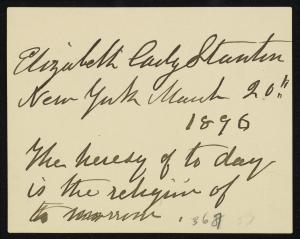 Elizabeth Cady Stanton
New York March 20th
1896
The heresy of to day
is the religion of
to morrow.